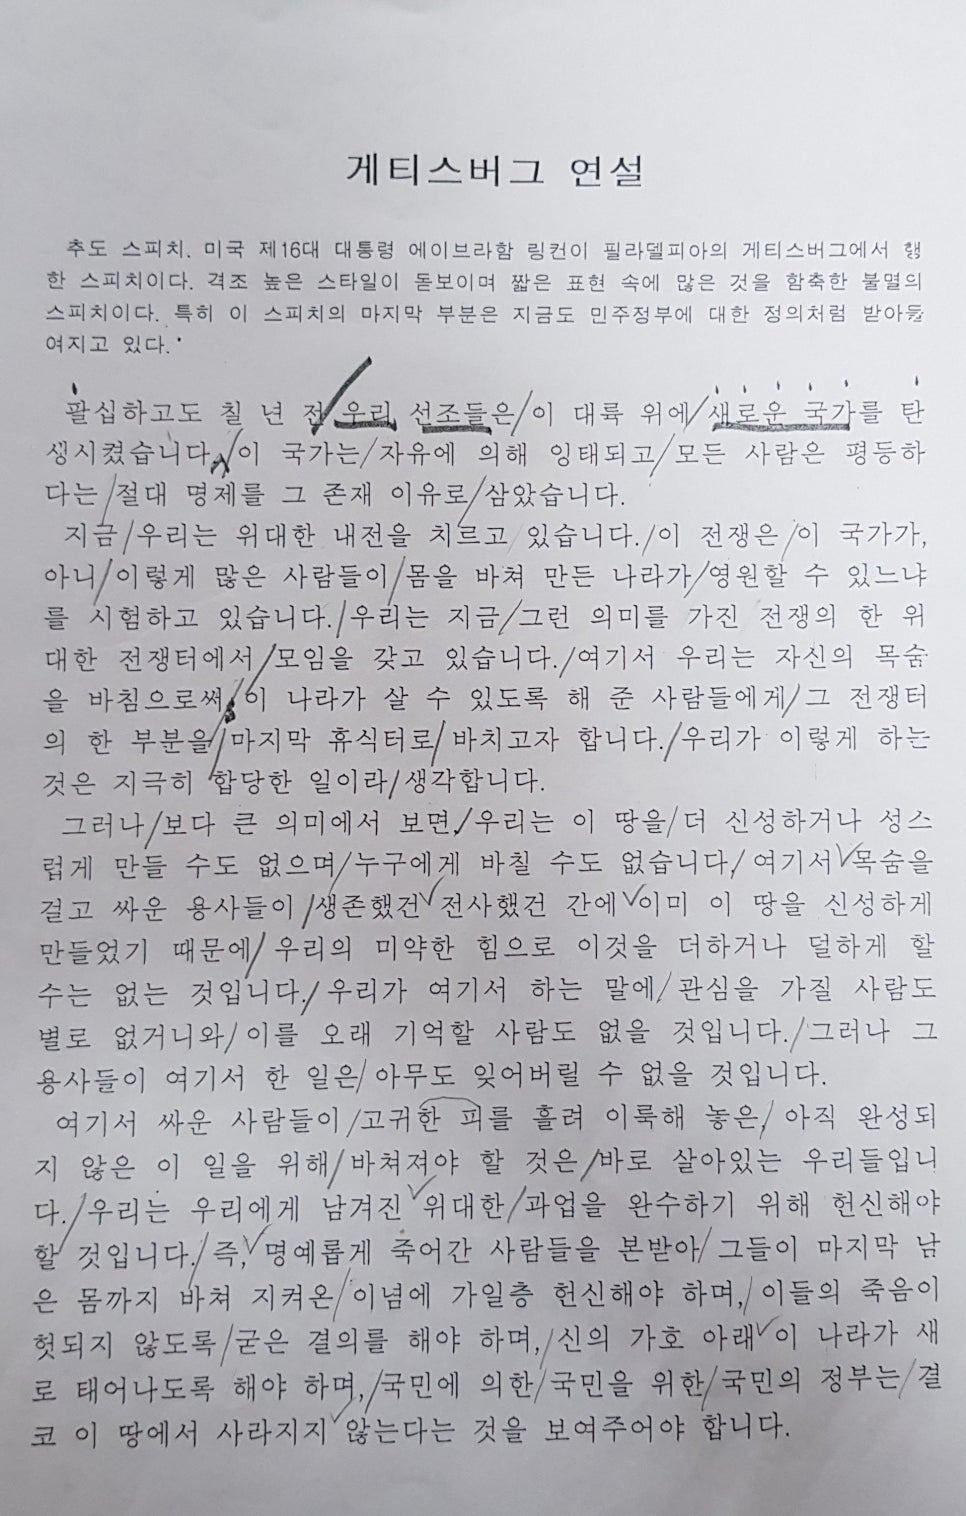 게티스버그 연설
추도 스피치. 미국 제16대 대통령 에이브라함 링컨이 필라델피아의 게티스버그에서 행
한 스피치이다. 격조 높은 스타일이 돋보이며 짧은 표현 속에 많은 것을 함축한 불멸의
스피치이다. 특히 이 스피치의 마지막 부분은 지금도 민주정부에 대한 정의처럼 받아들
여지고 있다.
팔십하고도 칠 년 전 우리 선조들은 이 대륙 위에 새로운 국가를 탄
생시켰습니다. 이 국가는 자유에 의해 잉태되고 모든 사람은 평등하
다는 절대 명제를 그 존재 이유로 삼았습니다.
지금 우리는 위대한 내전을 치르고 있습니다. 이 전쟁은 이 국가가,
아니 이렇게 많은 사람들이 몸을 바쳐 만든 나라가 영원할 수 있느냐
를 시험하고 있습니다. 우리는 지금 그런 의미를 가진 전쟁의 한 위
대한 전쟁터에서 모임을 갖고 있습니다. 여기서 우리는 자신의 목숨
을 바침으로써, 이 나라가 살 수 있도록 해 준 사람들에게 그 전쟁터
의 한 부분을 마지막 휴식터로 바치고자 합니다. 우리가 이렇게 하는
것은 지극히 합당한 일이라 생각합니다.
그러나 보다 큰 의미에서 보면, 우리는 이 땅을 더 신성하거나 성스
럽게 만들 수도 없으며 누구에게 바칠 수도 없습니다. 여기서 목숨을
걸고 싸운 용사들이 생존했건 전사했건 간에 이미 이 땅을 신성하게
만들었기 때문에 우리의 미약한 힘으로 이것을 더하거나 덜하게 할
수는 없는 것입니다. 우리가 여기서 하는 말에 관심을 가질 사람도
별로 없거니와 이를 오래 기억할 사람도 없을 것입니다. 그러나 그
용사들이 여기서 한 일은 아무도 잊어버릴 수 없을 것입니다.
여기서 싸운 사람들이 고귀한 피를 흘려 이룩해 놓은, 아직 완성되
지 않은 이 일을 위해 바쳐져야 할 것은 바로 살아있는 우리들입니
다. 우리는 우리에게 남겨진 위대한 과업을 완수하기 위해 헌신해야
할 것입니다. 즉, 명예롭게 죽어간 사람들을 본받아 그들이 마지막 남
은 몸까지 바쳐 지켜온 이념에 가일층 헌신해야 하며, 이들의 죽음이
헛되지 않도록 굳은 결의를 해야 하며, 신의 가호 아래 이 나라가 새
로 태어나도록 해야 하며, 국민에 의한 국민을 위한 국민의 정부는 결
코 이 땅에서 사라지지 않는다는 것을 보여주어야 합니다.